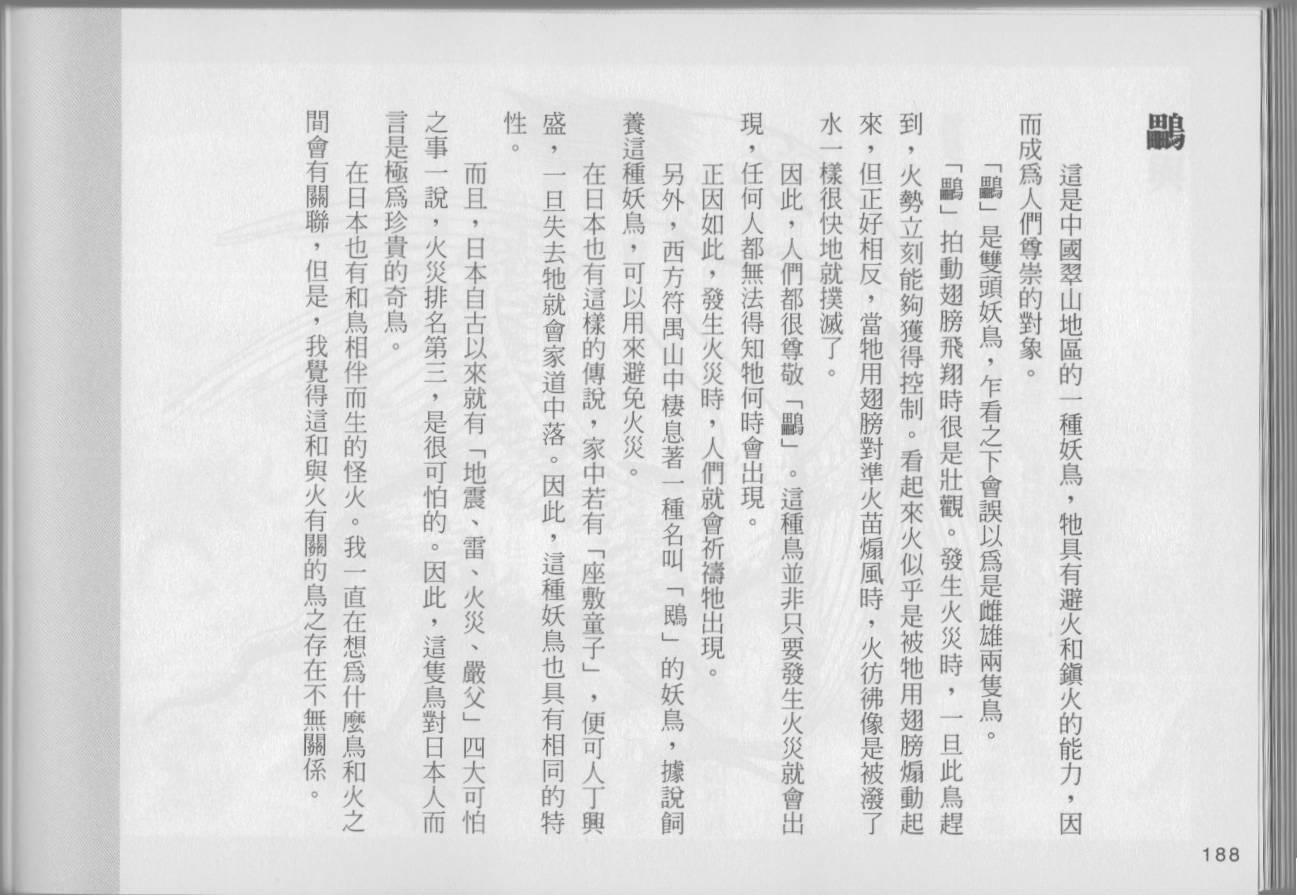 鸓
這是中國翠山地區的一種妖鳥，牠具有避火和鎮火的能力，因
而成爲人們尊崇的對象。
「鸓」是雙頭妖鳥，乍看之下會誤以爲是雌雄兩隻鳥。
「鸓」拍動翅膀飛翔時很是壯觀。發生火災時，一旦此鳥趕
到，火勢立刻能夠獲得控制。看起來火似乎是被牠用翅膀煽動起
來，但正好相反，當牠用翅膀對準火苗煽風時，火彷彿像是被潑了
水一樣很快地就撲滅了。
因此，人們都很尊敬「鸓」。這種鳥並非只要發生火災就會出
現，任何人都無法得知牠何時會出現。
正因如此，發生火災時，人們就會祈禱牠出現。
另外，西方符禺山中棲息著一種名叫「鴖」的妖鳥，據說飼
養這種妖鳥，可以用來避免火災。
在日本也有這樣的傳說，家中若有「座敷童子」，便可人丁興
盛，一旦失去牠就會家道中落。因此，這種妖鳥也具有相同的特
性。
而且，日本自古以來就有「地震、雷、火災、嚴父」四大可怕
之事一說，火災排名第三，是很可怕的。因此，這隻鳥對日本人而
言是極爲珍貴的奇鳥。
在日本也有和鳥相伴而生的怪火。我一直在想爲什麼鳥和火之
間會有關聯，但是，我覺得這和與火有關的鳥之存在不無關係。
188